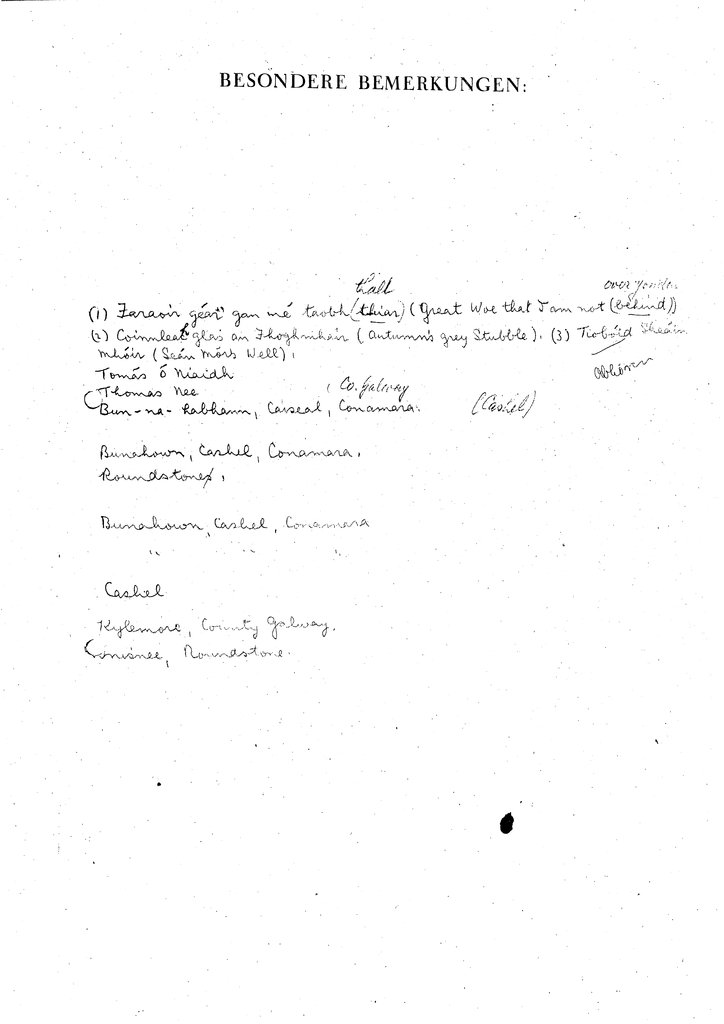 BESONDERE BEMERKUNGEN:
thall
over yonder
(1) Faraoir géar gan mé taobh (thiar) (Great Woe that I am not (behind))
(2) Coinnleach glas an Fhoghmhair (Autumn's grey Stubble). (3) Tiobóid Sheáin
Mhóir (Seán Mór's Well).
Tomás Ó Niaidh
Thomas Nee
, Co. Galway
Bun-na-habhann, Caiseal, Conamara. (Cashel)
Bunahown, Cashel, Conamara.
Roundstone,
Bunahown, Cashel, Conamara
" " "
Cashel
Kylemore, County Galway.
Inisnee, Roundstone.